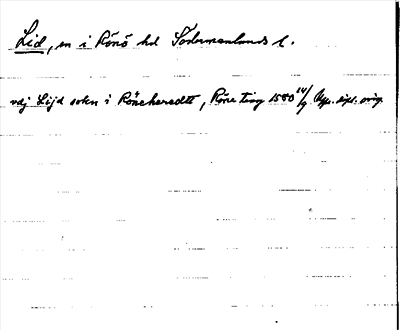 Lid, sn i Rönö hd Södermanlands l.
vdj Lijd sokn i Röneheredtt, Röne ting 1580 14/9 Upps. dipl. orig.